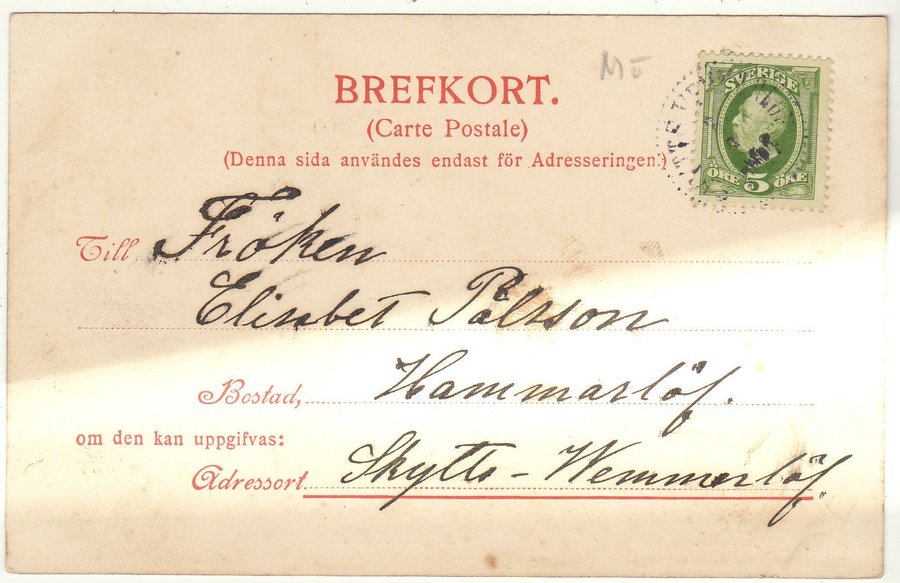 Mö
BREFKORT.
(Carte Postale)
(Denna sida användes endast för Adresseringen.)
SVERIGE
ÖRE 5 ÖRE
Till Fröken
Elisabet Pålsson
Bostad, Hammarlöf.
om den kan uppgifvas:
Adressort Skytts-Wemmerlöf